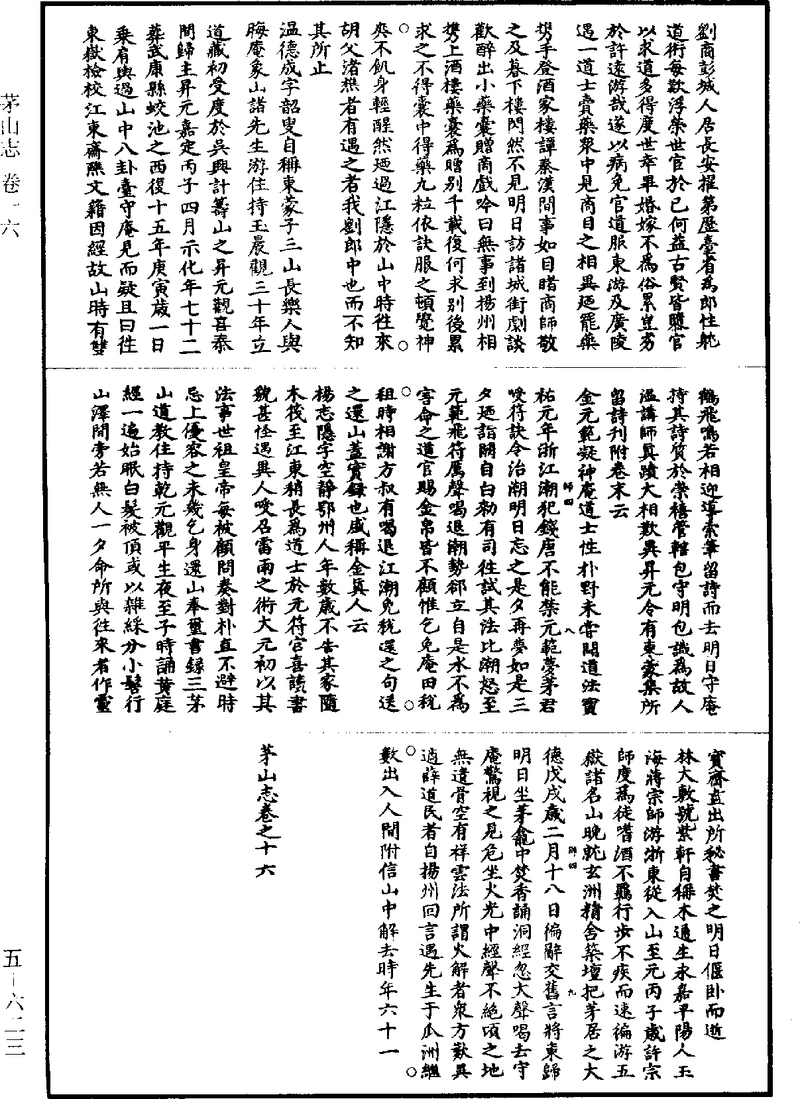 劉商彭城人居長安擢第歷臺省為郎性躭
道術每歎浮榮世官於已何益古賢皆隳官
以求道多得度世幸畢婚嫁不為俗累豈劣
於許遠游哉遂以病免官道服東游及廣陵
遇一道士賣藥眾中見商目之相異廼罷藥
携手登酒家樓譚秦漢間事如目睹商師敬
之及暮下樓閃然不見明日訪諸城街劇談
歡醉出小藥囊贈商戲吟曰無事到揚州相
携上酒樓藥囊為贈別千載復何求別後累
求之不得囊中得藥九粒依訣服之頓覺神
爽不飢身輕醒然廼過江隱於山中時往來
胡父渚樵者有遇之者我劉郎中也而不知
其所止
温德成字韶叟自稱東蒙子三山長樂人與
晦庵象山諸先生游住持玉晨觀三十年立
道藏初受度於吳興計籌山之昇元觀喜泰
間歸主昇元嘉定丙子四月示化年七十二
葬武康縣蛟池之西復十五年庚寅歲一日
乘肩輿過山中八卦臺守庵見而疑且曰往
東嶽檢校江東齋醮文籍因經故山時有雙
鶴飛鳴若相迎導索筆留詩而去明日守庵
持其詩質於崇禧管轄包守明包識為故人
溫講師真蹟大相歎異昇元今有東蒙集所
留詩刊附卷末云
金元範凝神庵道士性朴野未嘗閱道法寶
祐元年浙江潮犯錢唐不能禁元範夢茅君
唆符訣令治潮明日忘之是夕再夢如是三
夕廼詣闕自白勑有司往試其法比潮怒至
元範飛符厲聲喝退潮勢郤立自是水不為
害命之道官賜金帛皆不顧惟乞免庵田稅
租時相謝方叔有喝退江潮免稅還之句送
之還山蓋實錄也咸稱金真人云
楊志隱字空靜鄂州人年數歲不告其家隨
木筏至江東稍長為道士於元符宮喜讀書
貌甚怪遇異人唆召雷雨之術大元初以其
法事世祖皇帝每被顧問奏對朴直不避時
忌上優容之未幾乞身還山奉璽書錄三茅
山道教住持乾元觀平生夜至子時誦黃庭
經一遍始眠白髮被頂或以雜綵分小髻行
山澤間旁若無人一夕命所與往來者作靈
寶齋盡出所秘書焚之明日偃卧而逝
林大敷號紫軒自稱木通生永嘉平陽人玉
海蔣宗師游浙東從入山至元丙子歲許宗
師度為徒嗜酒不羈行步不疾而速徧游五
嶽諸名山晚躭玄洲精舍築壇把茅居之大
德戊戌歲二月十八日徧辭交舊言將東歸
明日坐茅龕中焚香誦洞經忽大聲喝去守
庵驚視之見危坐火光中經聲不絕頃之地
無遺骨空有祥雲法所謂火解者眾方歎異
適薛道民者自揚州回言遇先生于瓜洲繼
數出入人間附信山中解去時年六十一
茅山志卷之十六
師四
八
師四
九
茅山志 卷一六
五－六二三